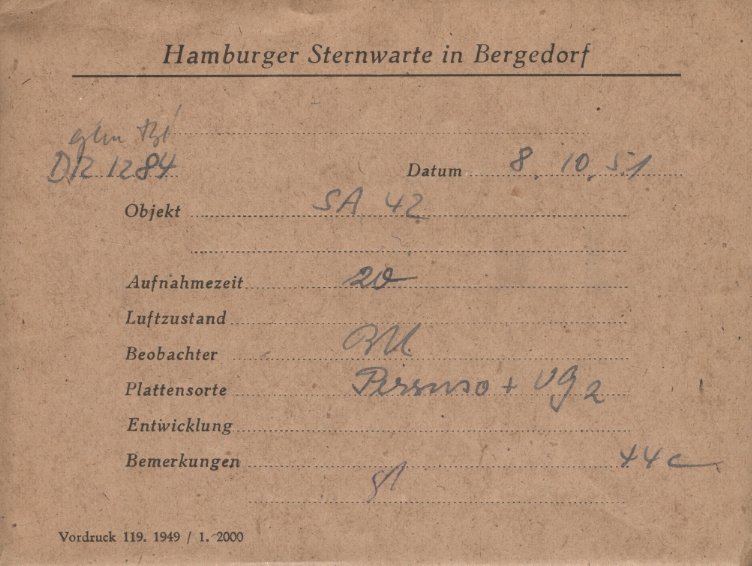 Hamburger Sternwarte in Bergedorf
DR 1284 Datum 8. 10. 51
Objekt SA 42
Aufnahmezeit 20
Luftzustand
Beobachter
Plattensorte Persenso + VG2
Entwicklung
Bemerkungen 44c
Vordruck 119. 1949 / 1. 2000